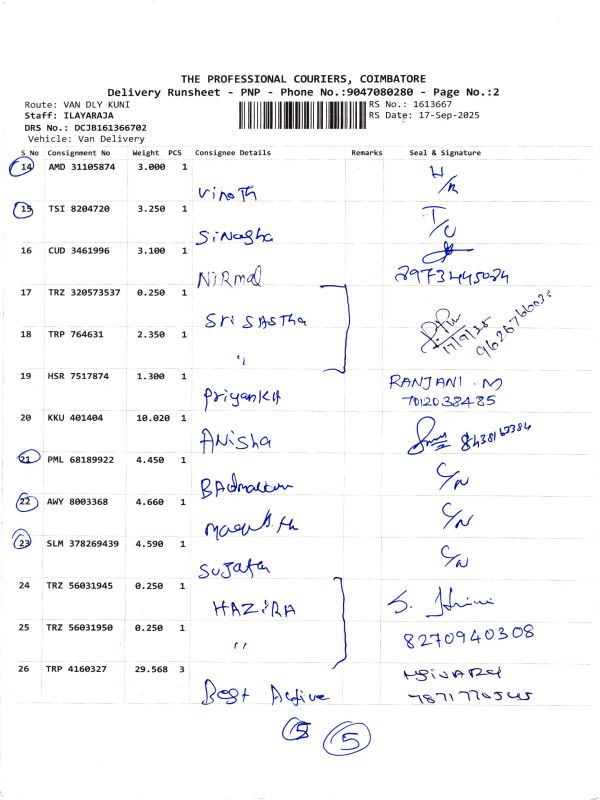 THE PROFESSIONAL COURIERS, COIMBATORE
Delivery Runsheet - PNP - Phone No.:9047080280 - Page No.:2
Route: VAN DLY KUNI RS No.: 1613667
Staff: ILAYARAJA RS Date: 17-Sep-2025
DRS No.: DCJB161366702
Vehicle: Van Delivery
S No Consignment No Weight PCS Consignee Details Remarks Seal & Signature
14 AMD 31105874 3.000 1
Vinoth
15 TSI 8204720 3.250 1
Sinagha
16 CUD 3461996 3.100 1
NiRmal
17 TRZ 320573537 0.250 1
Sri SASTha
18 TRP 764631 2.350 1
"
17/9/25
19 HSR 7517874 1.300 1 RANJANI . M
Priyanka 7012038485
20 KKU 401404 10.020 1
ANisha
21 PML 68189922 4.450 1
C/N
22 AWY 8003368 4.660 1
C/N
23 SLM 378269439 4.590 1
Sujatha C/N
24 TRZ 56031945 0.250 1
HAZIRA
25 TRZ 56031950 0.250 1
" 8270940308
26 TRP 4160327 29.568 3
Best Active
5